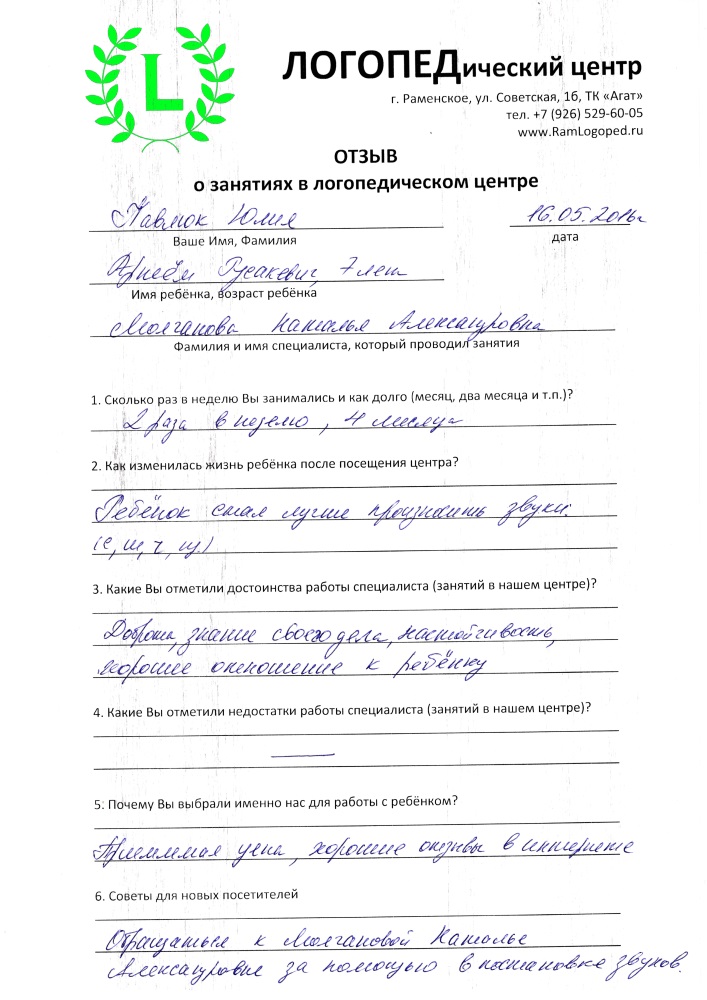 L
ЛОГОПЕДический центр
г. Раменское, ул. Советская, 1б, ТК «Агат»
тел. +7 (926) 529-60-05
www.RamLogoped.ru
ОТЗЫВ
о занятиях в логопедическом центре
Павлюк Юлия 16.05.2016г
Ваше Имя, Фамилия дата
Артём Русакевич, 7 лет
Имя ребёнка, возраст ребёнка
Молчанова Наталья Александровна
Фамилия и имя специалиста, который проводил занятия
1. Сколько раз в неделю Вы занимались и как долго (месяц, два месяца и т.п.)?
2 раза в неделю, 4 месяца
2. Как изменилась жизнь ребёнка после посещения центра?
Ребёнок стал лучше произносить звуки.
(с, ш, ч, щ.)
3. Какие Вы отметили достоинства работы специалиста (занятий в нашем центре)?
Доброта, знание своего дела, настойчивость,
хорошее отношение к ребёнку
4. Какие Вы отметили недостатки работы специалиста (занятий в нашем центре)?
—
5. Почему Вы выбрали именно нас для работы с ребёнком?
Приемлемая цена, хорошие отзывы в интернете
6. Советы для новых посетителей
Обращаться к Молчановой Наталье
Александровне за помощью в постановке звуков.